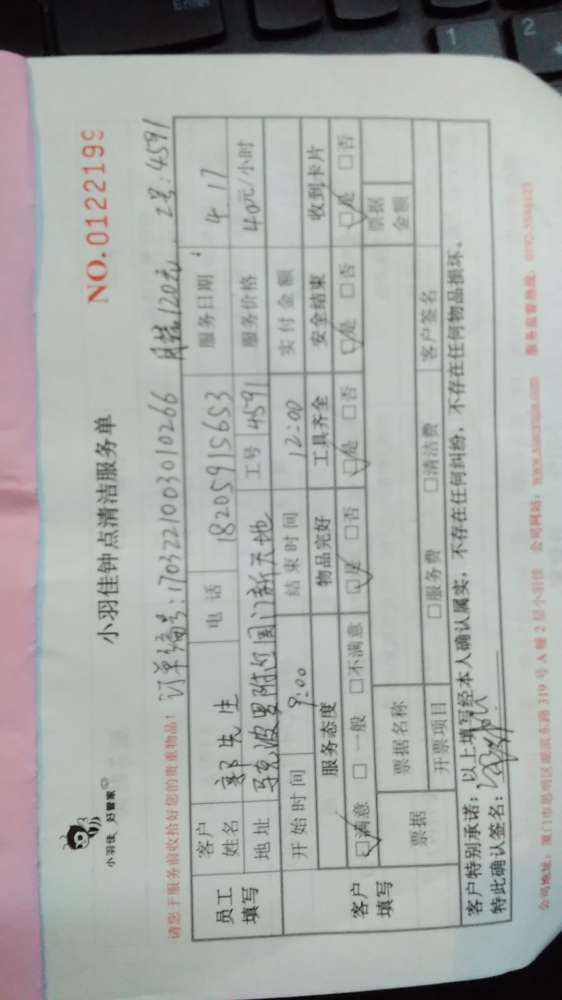 小羽佳 好管家
小羽佳钟点清洁服务单
NO.0122199
请您于服务前收拾好您的贵重物品！
订单编号:170322100301026​6 月结120元, 工号:4591
员工填写 客户姓名 郭先生 电话 18205915653 服务日期: 4.17
地址 马克波罗附近国门新天地 工号 4591 服务价格 40元/小时
客户填写 开始时间 9:00 结束时间 12:00 实付金额
服务态度 物品完好 工具齐全 安全结束 收到卡片
☑满意 □一般 □不满意 ☑是 □否 ☑是 □否 ☑是 □否 ☑是 □否
票据 票据名称 票据金额
开票项目 □服务费 □清洁费 客户签名
客户特别承诺：以上填写经本人确认属实，不存在任何纠纷，不存在任何物品损坏。
特此确认签名：
公司地址：厦门市思明区湖滨东路319号A幢2层小羽佳 公司网站： 服务监督热线：
1
2
Enter